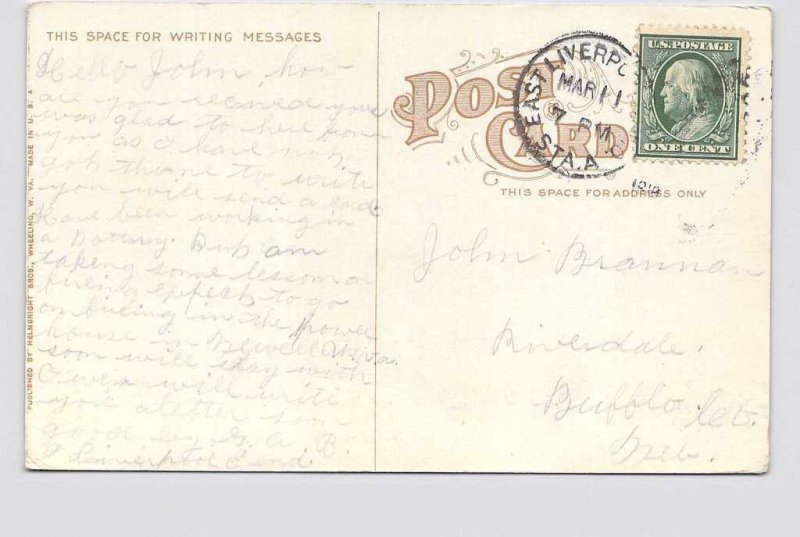 THIS SPACE FOR WRITING MESSAGES
Hello John, how
are you received your
was glad to hear from
you as I have not
got thome to write
you will send a card
Have been working in
a Pottery. But am
taking some lesson on
fireing expect to go
on fireing in the power
house in Newell W.Va.
soon will stay with
Owen will write
you a letter soon
good by G. A. B.
E Liverpool E end
PUBLISHED BY HELMBRIGHT BROS., WHEELING, W. VA. MADE IN U. S. A
POST CARD
EAST LIVERPO
MAR 11
7 PM
STA. A
O.
1912
U.S. POSTAGE
ONE CENT
THIS SPACE FOR ADDRESS ONLY
John Brannan
Riverdale.
Buffolo Co.
Neb.